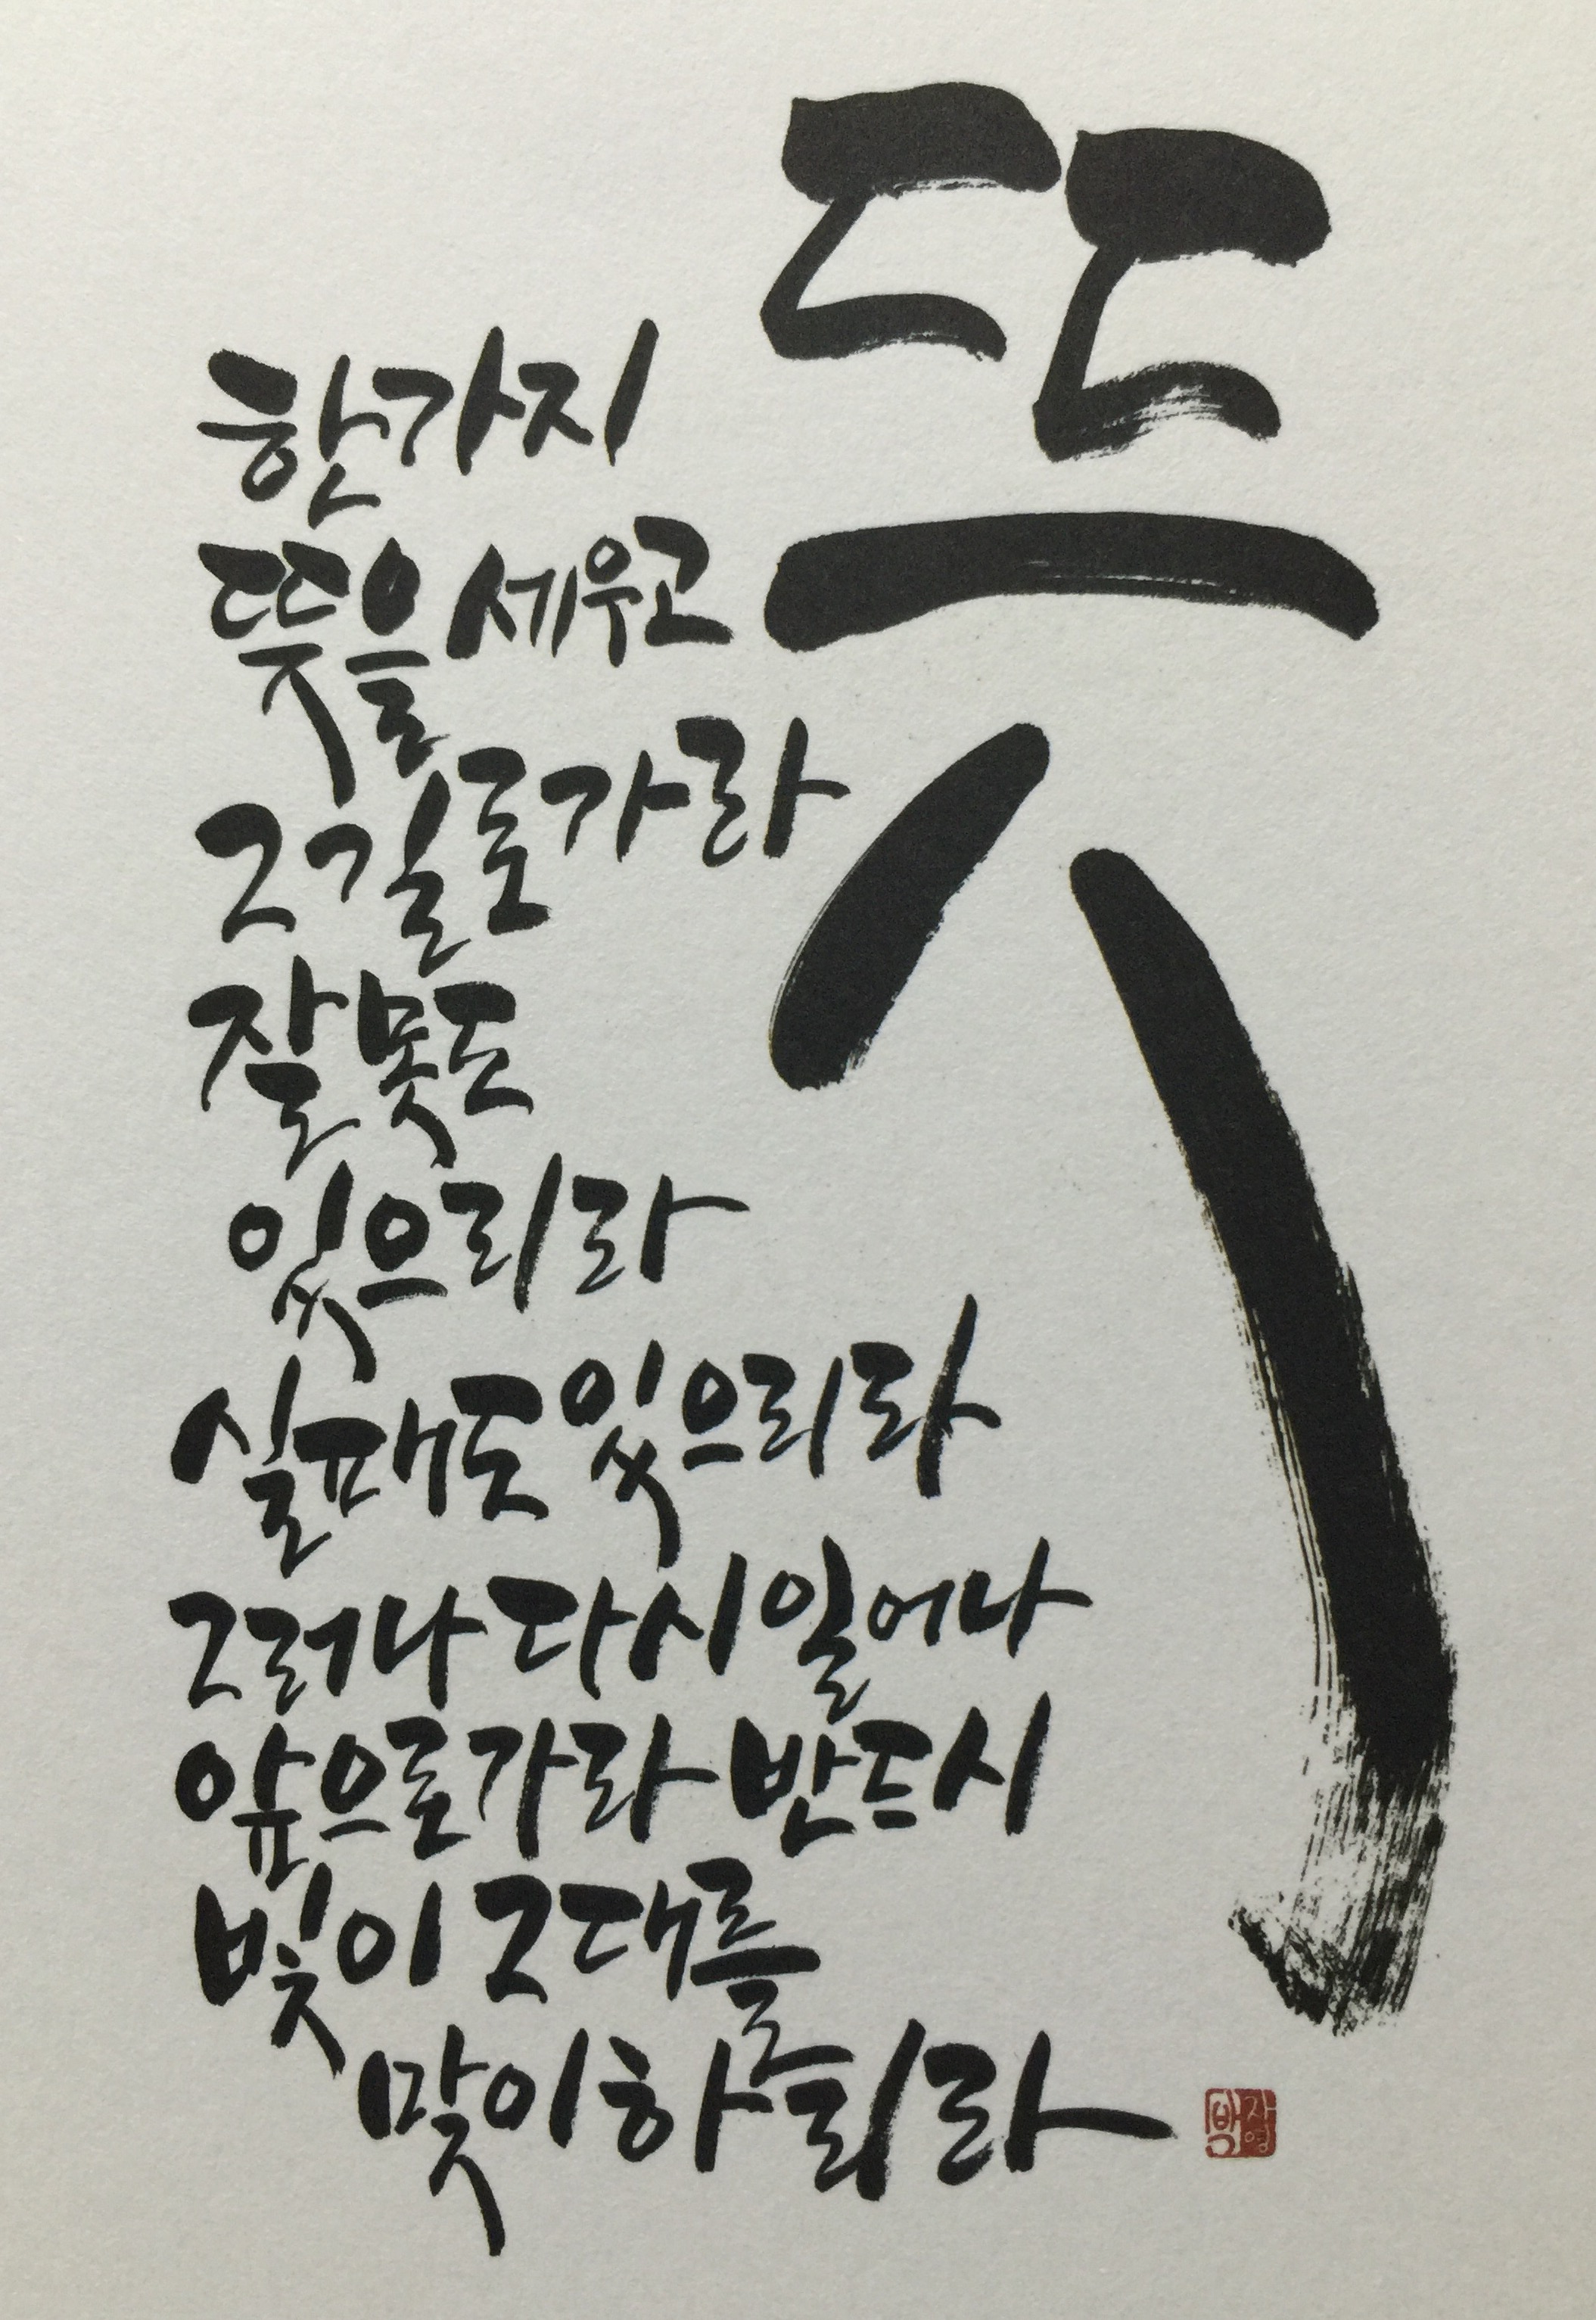 뜻
한가지
뜻을 세우고
그길로가라
잘못도
있으리라
실패도 있으리라
그러나 다시 일어나
앞으로가라 반드시
빛이 그대를
맞이하리라